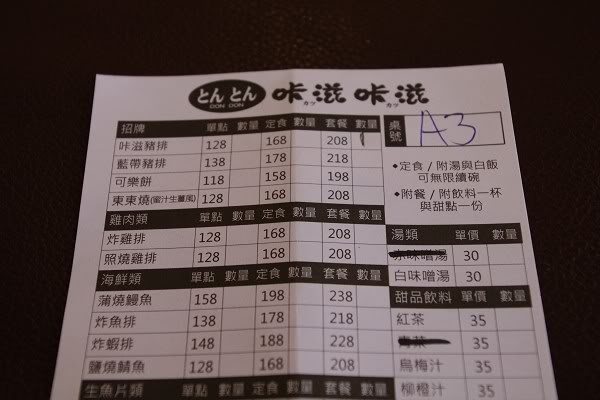 とん とん
DON DON
咔滋 咔滋
カツ カツ
招牌 單點 數量 定食 數量 套餐 數量
咔滋豬排 128 168 208
藍帶豬排 138 178 218
可樂餅 118 158 198
東東燒(蜜汁生薑風) 128 168 208
雞肉類 單點 數量 定食 數量 套餐 數量
炸雞排 128 168 208
照燒雞排 128 168 208
海鮮類 單點 數量 定食 數量 套餐 數量
蒲燒鰻魚 158 198 238
炸魚排 138 178 218
炸蝦排 148 188 228
鹽燒鯖魚 128 168 208
生魚片類 單點 數量 定食 數量 套餐 數量
桌號 A3
◆定食/附湯與白飯
可無限續碗
◆附餐/附飲料一杯
與甜點一份
湯類 單價 數量
赤味噌湯 30
白味噌湯 30
甜品飲料 單價 數量
紅茶 35
青茶 35
烏梅汁 35
柳橙汁 35